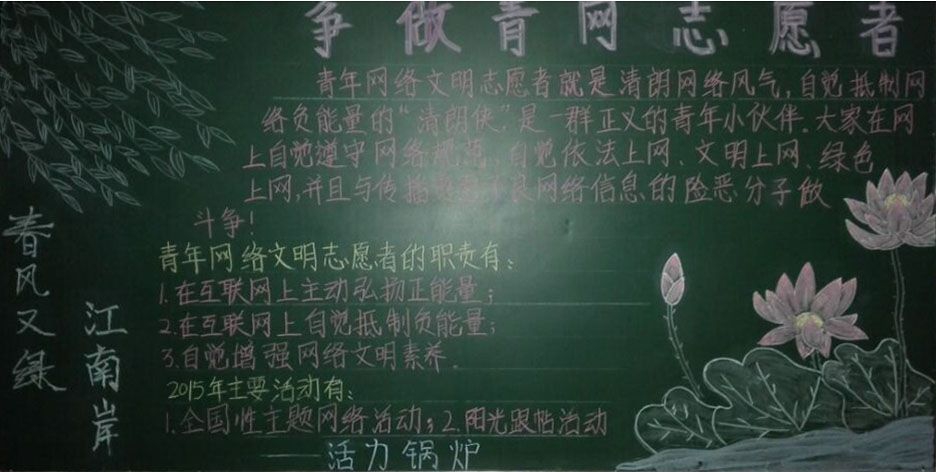 争做青网志愿者
青年网络文明志愿者就是清朗网络风气,自觉抵制网
络负能量的“清朗侠”是一群正义的青年小伙伴.大家在网
上自觉遵守网络规范,自觉依法上网、文明上网、绿色
上网,并且与传播 不良网络信息的险恶分子做
斗争!
青年网络文明志愿者的职责有:
1.在互联网上主动弘扬正能量;
2.在互联网上自觉抵制负能量;
3.自觉增强网络文明素养.
2015年主要活动有:
1.全国性主题网络活动;2.阳光跟帖活动
——活力锅炉
春风又绿
江南岸